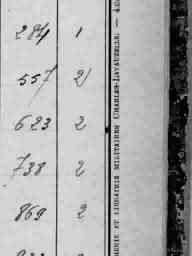 284 1
557 2
623 2
738 2
869 2
MERIE ET LIBRAIRIE MILITAIRES CHARLES-LAVAUZELLE. —